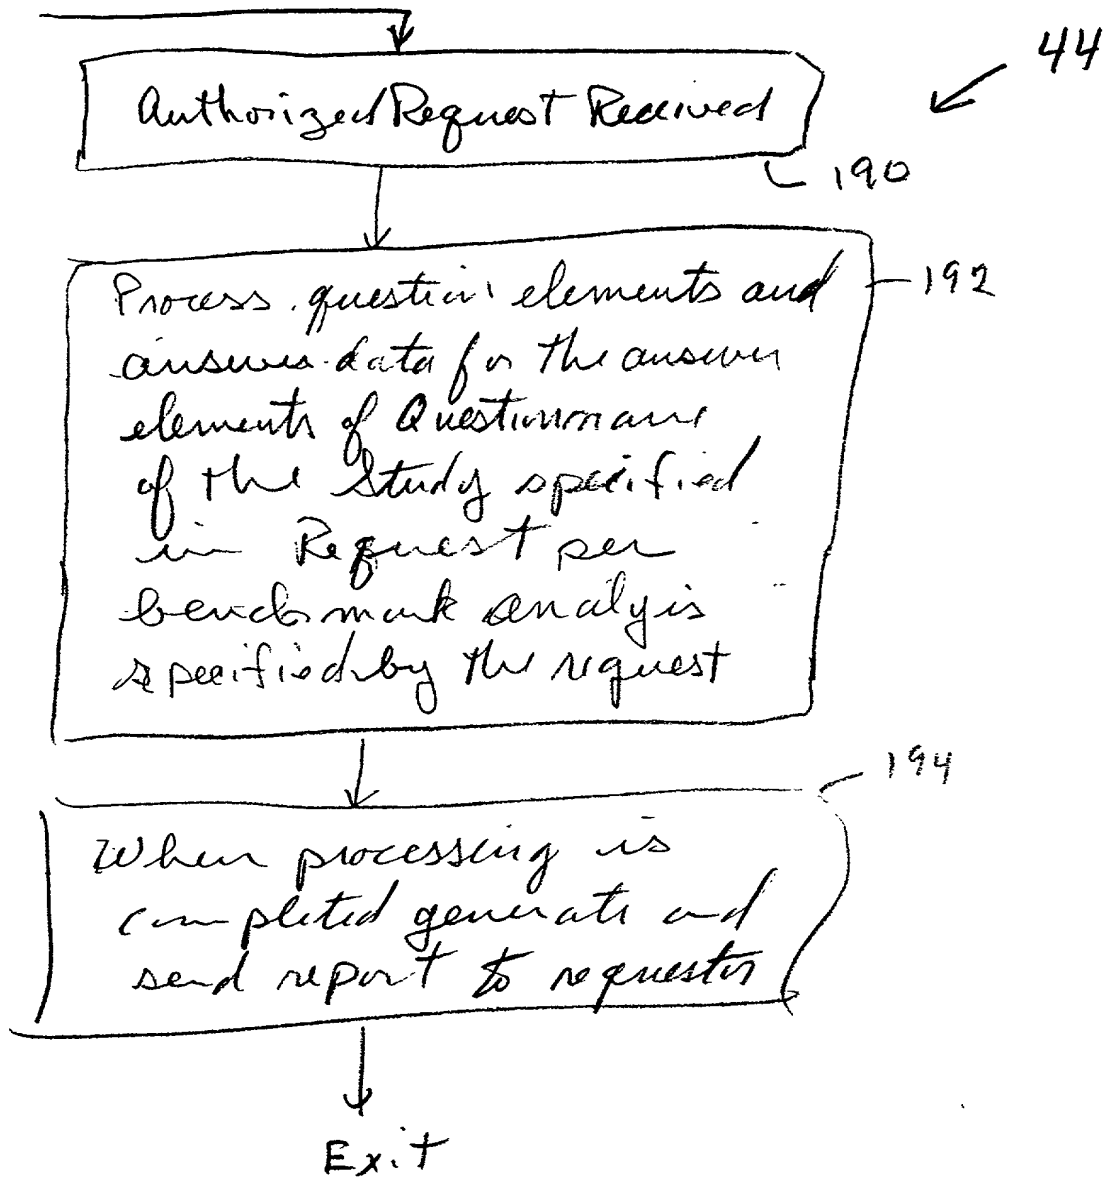 44
Authorized Request Received
190
Process question elements and
192
answer data for the answer
elements of Questionnaire
of the Study specified
in Request per
benchmark analyis
specified by the request
194
When processing is
completed generate and
send report to requestor
Exit